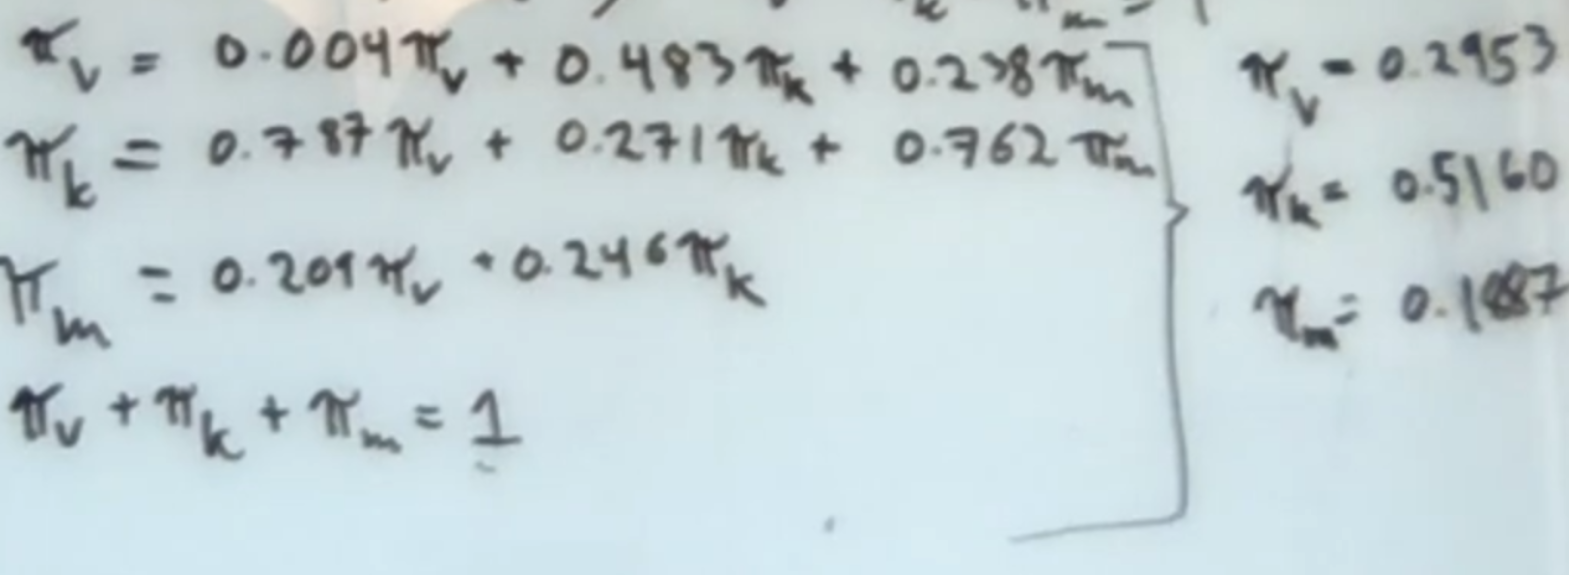 π_v = 0.004π_v + 0.483π_k + 0.238π_m
π_k = 0.787π_v + 0.271π_k + 0.762π_m
π_m = 0.209π_v + 0.246π_k
π_v + π_k + π_m = 1
π_v = 0.2953
π_k = 0.5160
π_m = 0.1887